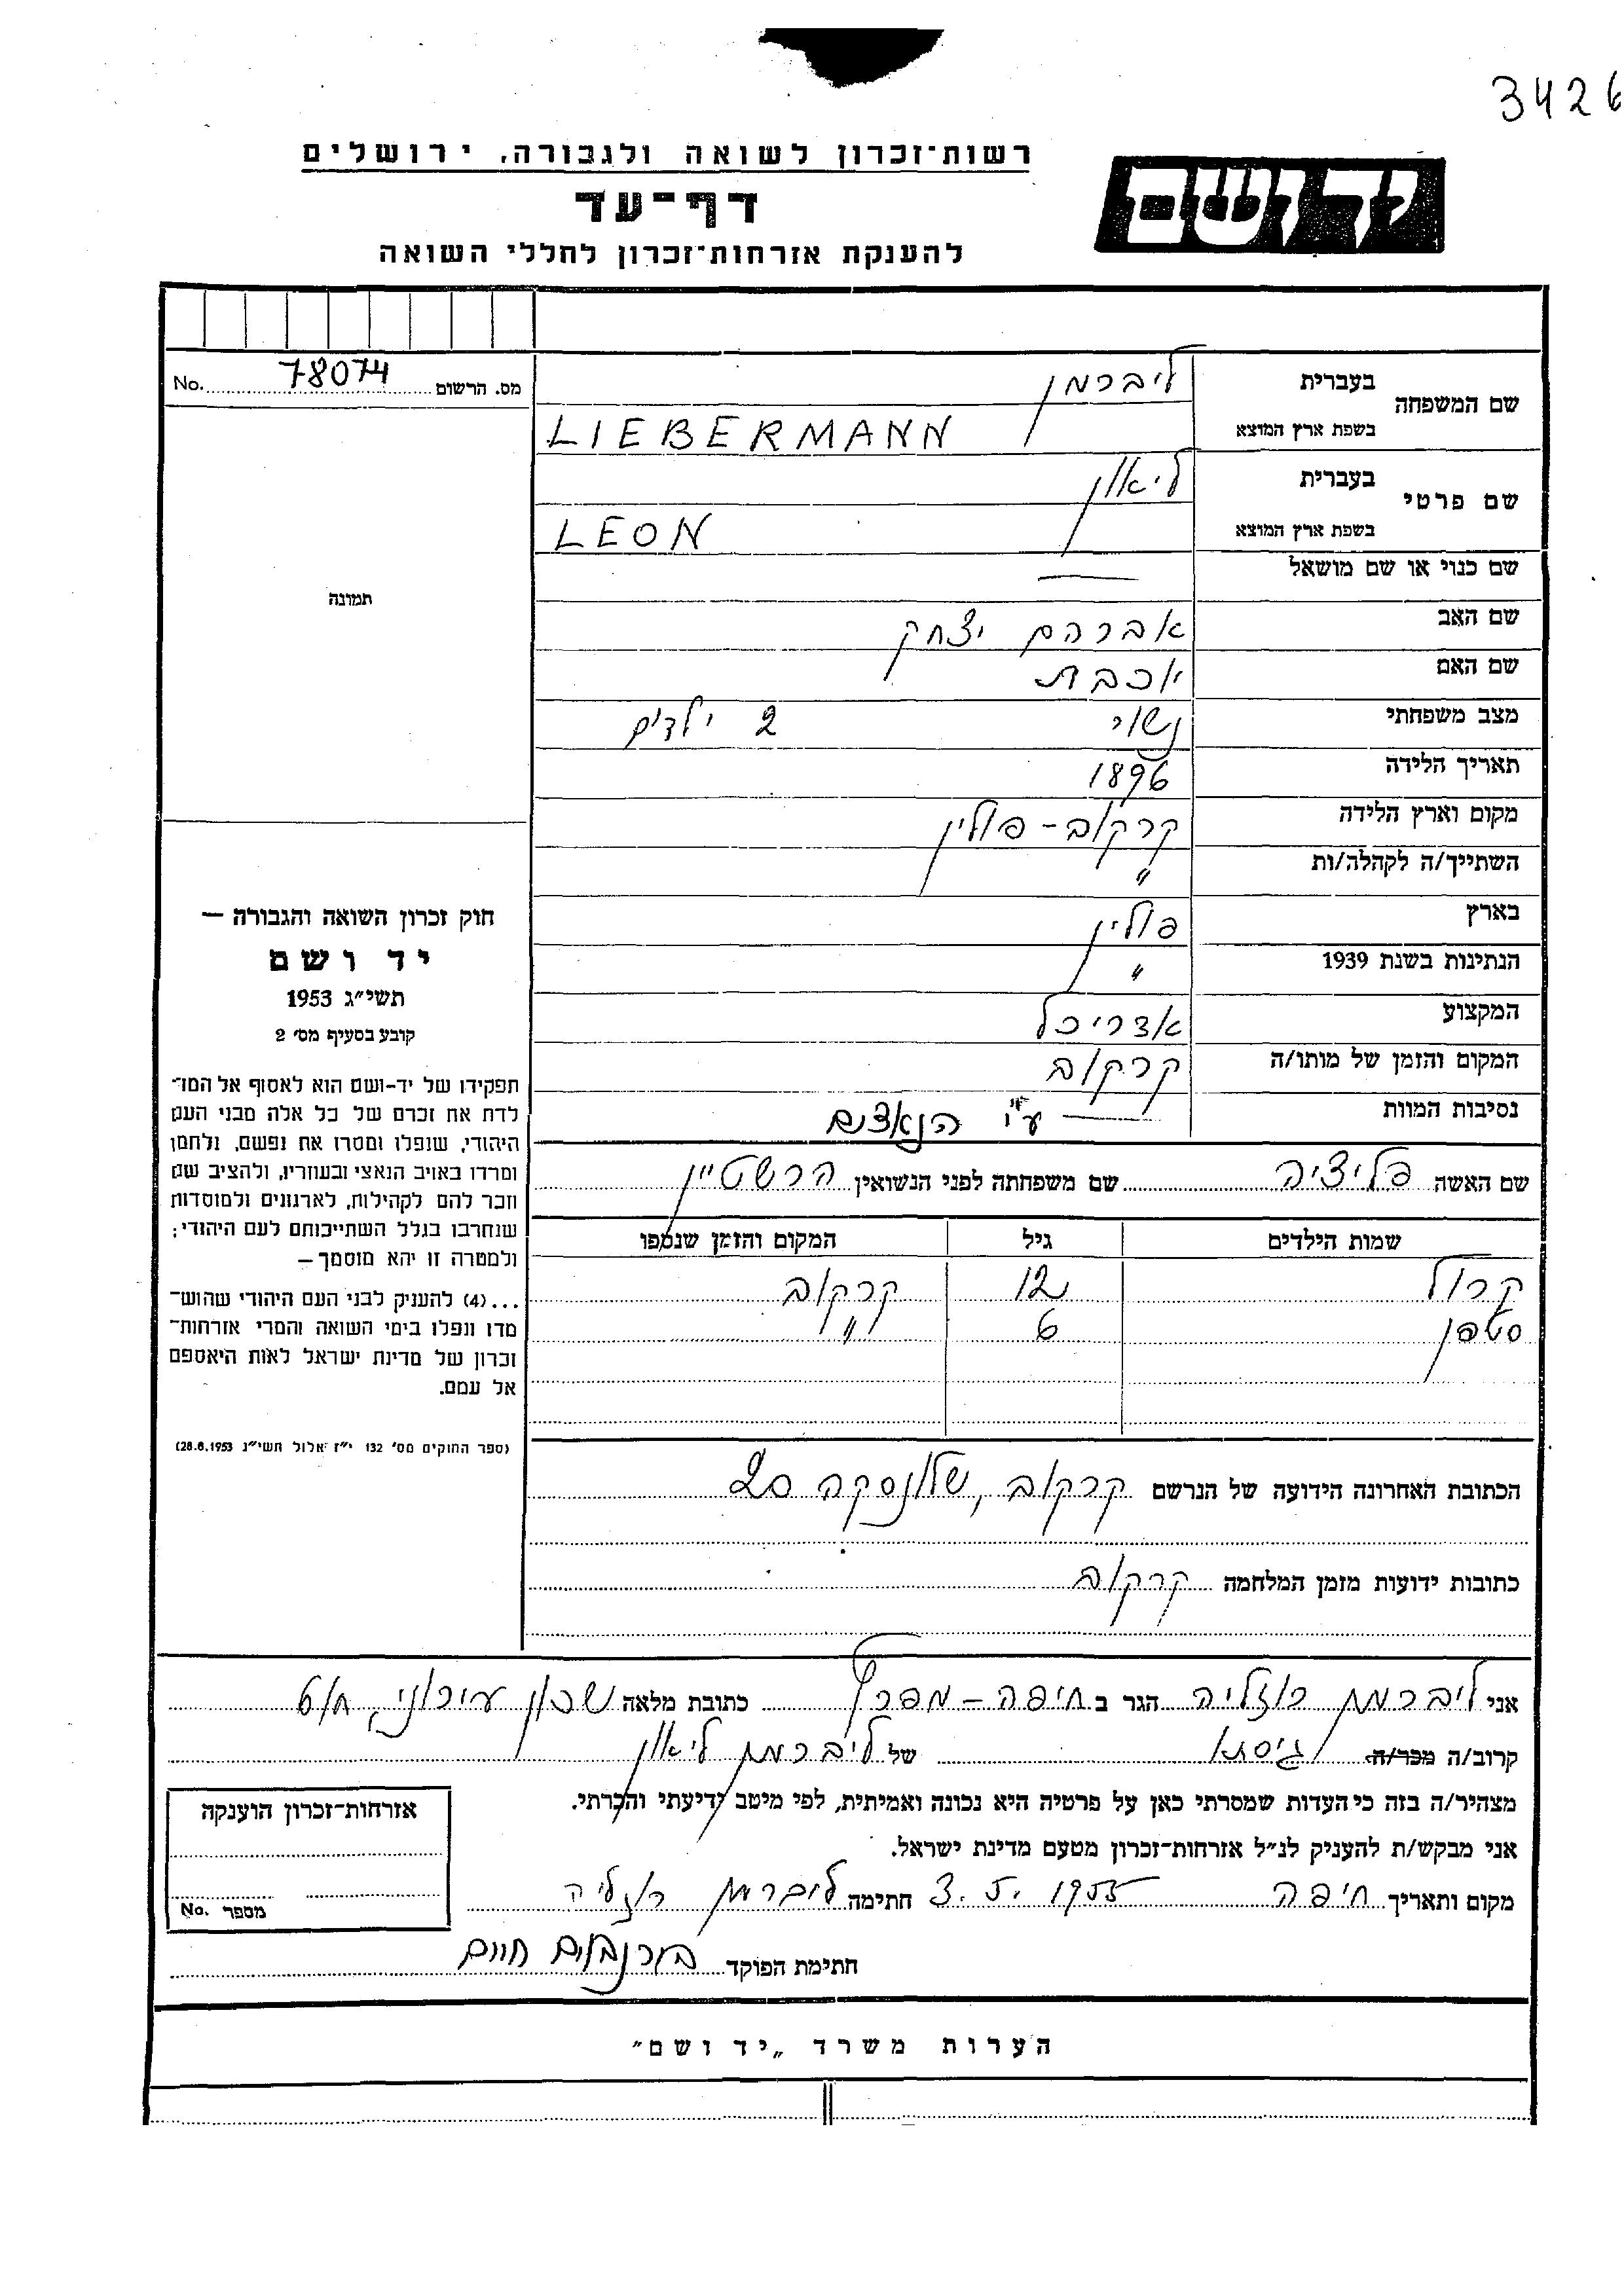 3426
רשות־זכרון לשואה ולגבורה, ירושלים
יד ושם
דף־עד
להענקת אזרחות־זכרון לחללי השואה
מס. הרשום 78074 No.
שם המשפחה בעברית ליברמן
בשפת ארץ המוצא LIEBERMANN
שם פרטי בעברית ליאון
בשפת ארץ המוצא LEON
שם כנוי או שם מושאל —
תמונה
שם האב אברהם יצחק
שם האם יוכבת
מצב משפחתי נשוי 2 ילדים
תאריך הלידה 1896
מקום וארץ הלידה קרקוב - פולין
השתייך/ה לקהלה/ות "
בארץ פולין
הנתינות בשנת 1939 "
המקצוע אדריכל
המקום והזמן של מותו/ה קרקוב
נסיבות המוות — ע"י הנאצים
חוק זכרון השואה והגבורה —
יד ושם
תשי״ג 1953
קובע בסעיף מס׳ 2
תפקידו של יד-ושם הוא לאסוף אל המו־
לדת את זכרם של כל אלה מבני העם
היהודי, שנפלו ומסרו את נפשם, נלחמו
ומרדו באויב הנאצי ובעוזריו, ולהציב שם
וזכר להם לקהילות, לארגונים ולמוסדות
שנחרבו בגלל השתייכותם לעם היהודי;
ולמטרה זו יהא מוסמך —
...(4) להעניק לבני העם היהודי שהוש־
מדו ונפלו בימי השואה והמרי אזרחות־
זכרון של מדינת ישראל לאות היאספם
אל עמם.
(ספר החוקים מס׳ 132 י״ז אלול תשי״ג 28.8.1953)
שם האשה פליציה שם משפחתה לפני הנשואין הרשטיין
שמות הילדים גיל המקום והזמן שנספו
קרול 12 קרקוב
סטפן 6 "
הכתובת האחרונה הידועה של הנרשם קרקוב, שלונסקה 20
כתובות ידועות מזמן המלחמה קרקוב
אני ליברמן רוזליה הגר ב חיפה - מפרץ כתובת מלאה שכון עירוני, 6/ח
קרוב/ה מכר/ה גיסתו של ליברמן ליאון
מצהיר/ה בזה כי העדות שמסרתי כאן על פרטיה היא נכונה ואמיתית, לפי מיטב ידיעתי והכרתי.
אני מבקש/ת להעניק לנ״ל אזרחות־זכרון מטעם מדינת ישראל.
מקום ותאריך חיפה 3.5.1955 חתימה ליברמן רוזליה
חתימת הפוקד בירנבוים חיים
אזרחות־זכרון הוענקה
מספר No.
הערות משרד „יד ושם״